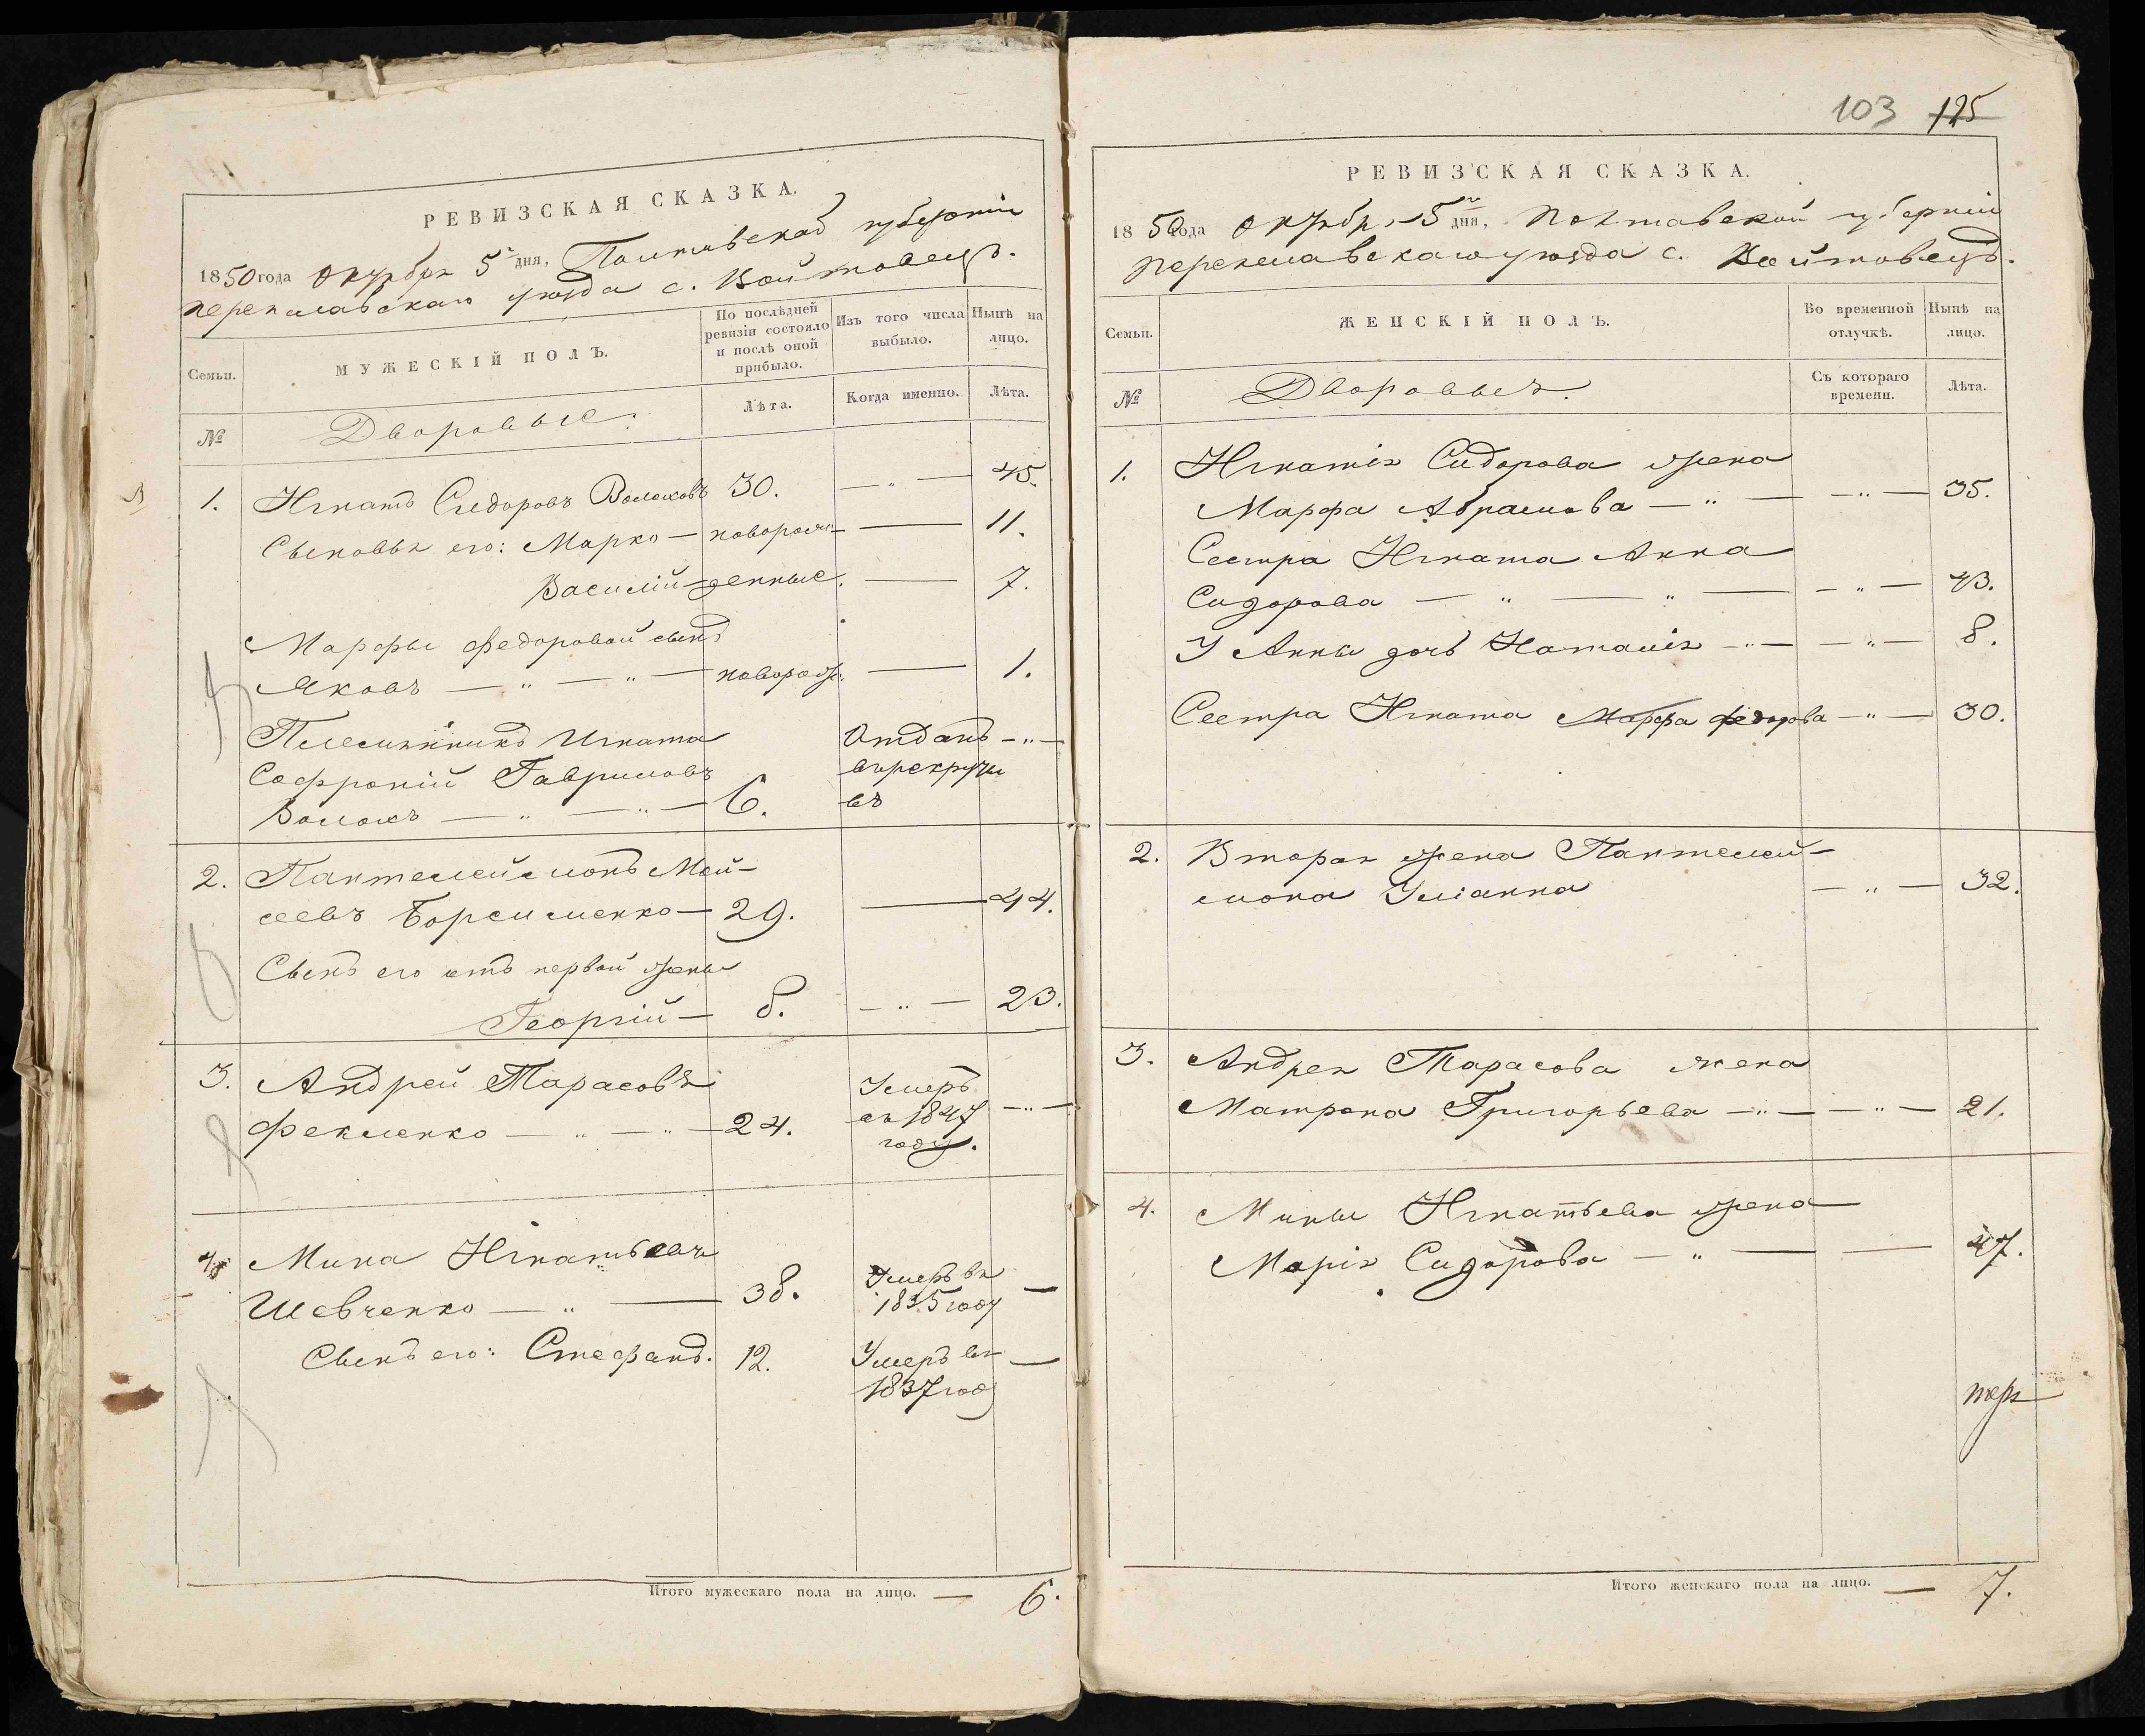 103 125
РЕВИЗСКАЯ СКАЗКА.
1850 года Октября 5 дня, Полтавской губернии
Переяславскаго уезда с. Войтовецъ.
Семьи.
МУЖЕСКІЙ ПОЛЪ.
По послѣдней ревизіи состояло и послѣ оной прибыло.
Изъ того числа выбыло.
Нынѣ на лицо.
№
Дворовые.
Лѣта.
Когда именно.
Лѣта.
1. Игнатъ Сидоровъ Волоховъ 30. — " — 45.
Сыновья его: Марко — новорож- — 11.
Василій — денные. — 7.
Марфы Федоровой сынъ
Яковъ — " — " — новорож: — 1.
Племянникъ Игната Отданъ — " —
Софроній Гавриловъ въ рекруты
Волохъ — " — " — 6. въ
2. Пантелеймонъ Мой-
сеевъ Борсименко — 29. — 44.
Сынъ его отъ первой жены
Георгій — 8. — " — 23.
3. Андрей Тарасовъ Умеръ
Фекленко — " — " — 24. въ 1847 — " —
году.
4. Мина Игнатьевъ
Шевченко — " — 38. Умеръ въ 1835 году —
Сынъ его: Стефанъ. 12. Умеръ въ —
1837 году
Итого мужескаго пола на лицо. — 6.
РЕВИЗСКАЯ СКАЗКА.
1850 года Октября 5 дня, Полтавской губерніи
Переяславскаго уезда с. Войтовецъ.
Семьи.
ЖЕНСКІЙ ПОЛЪ.
Во временной отлучкѣ.
Нынѣ на лицо.
№
Дворовыя.
Съ котораго времени.
Лѣта.
1. Игнатія Сидорова жена
Марфа Абрамова — " — — " — 35.
Сестра Игната Анна
Сидорова — " — " — — " — 43.
У Анны дочь Наталія — " — — " — 8.
Сестра Игната Марфа Федорова — " — 30.
2. Вторая жена Пантелей-
мона Уліанна — " — 32.
3. Андрея Тарасова жена
Матрона Григорьева — " — — " — 21.
4. Мины Игнатьева жена
Марія Сидорова — " — — 47.
Итого женскаго пола на лицо. — 7.